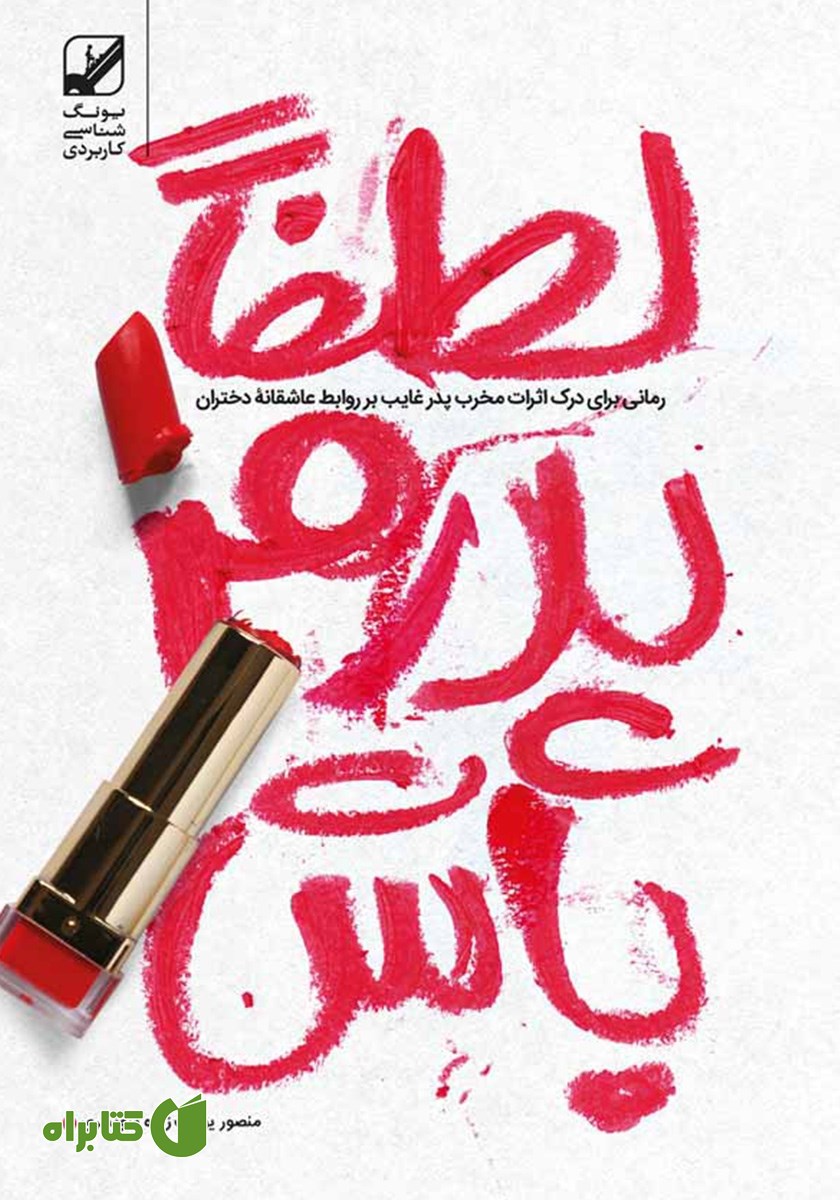 یونگ
شناسی
کاربردی
لطفاً
رمانی برای درک اثرات مخرب پدر غایب بر روابط عاشقانهٔ دختران
پدرم
باش
منصور
کتابراه